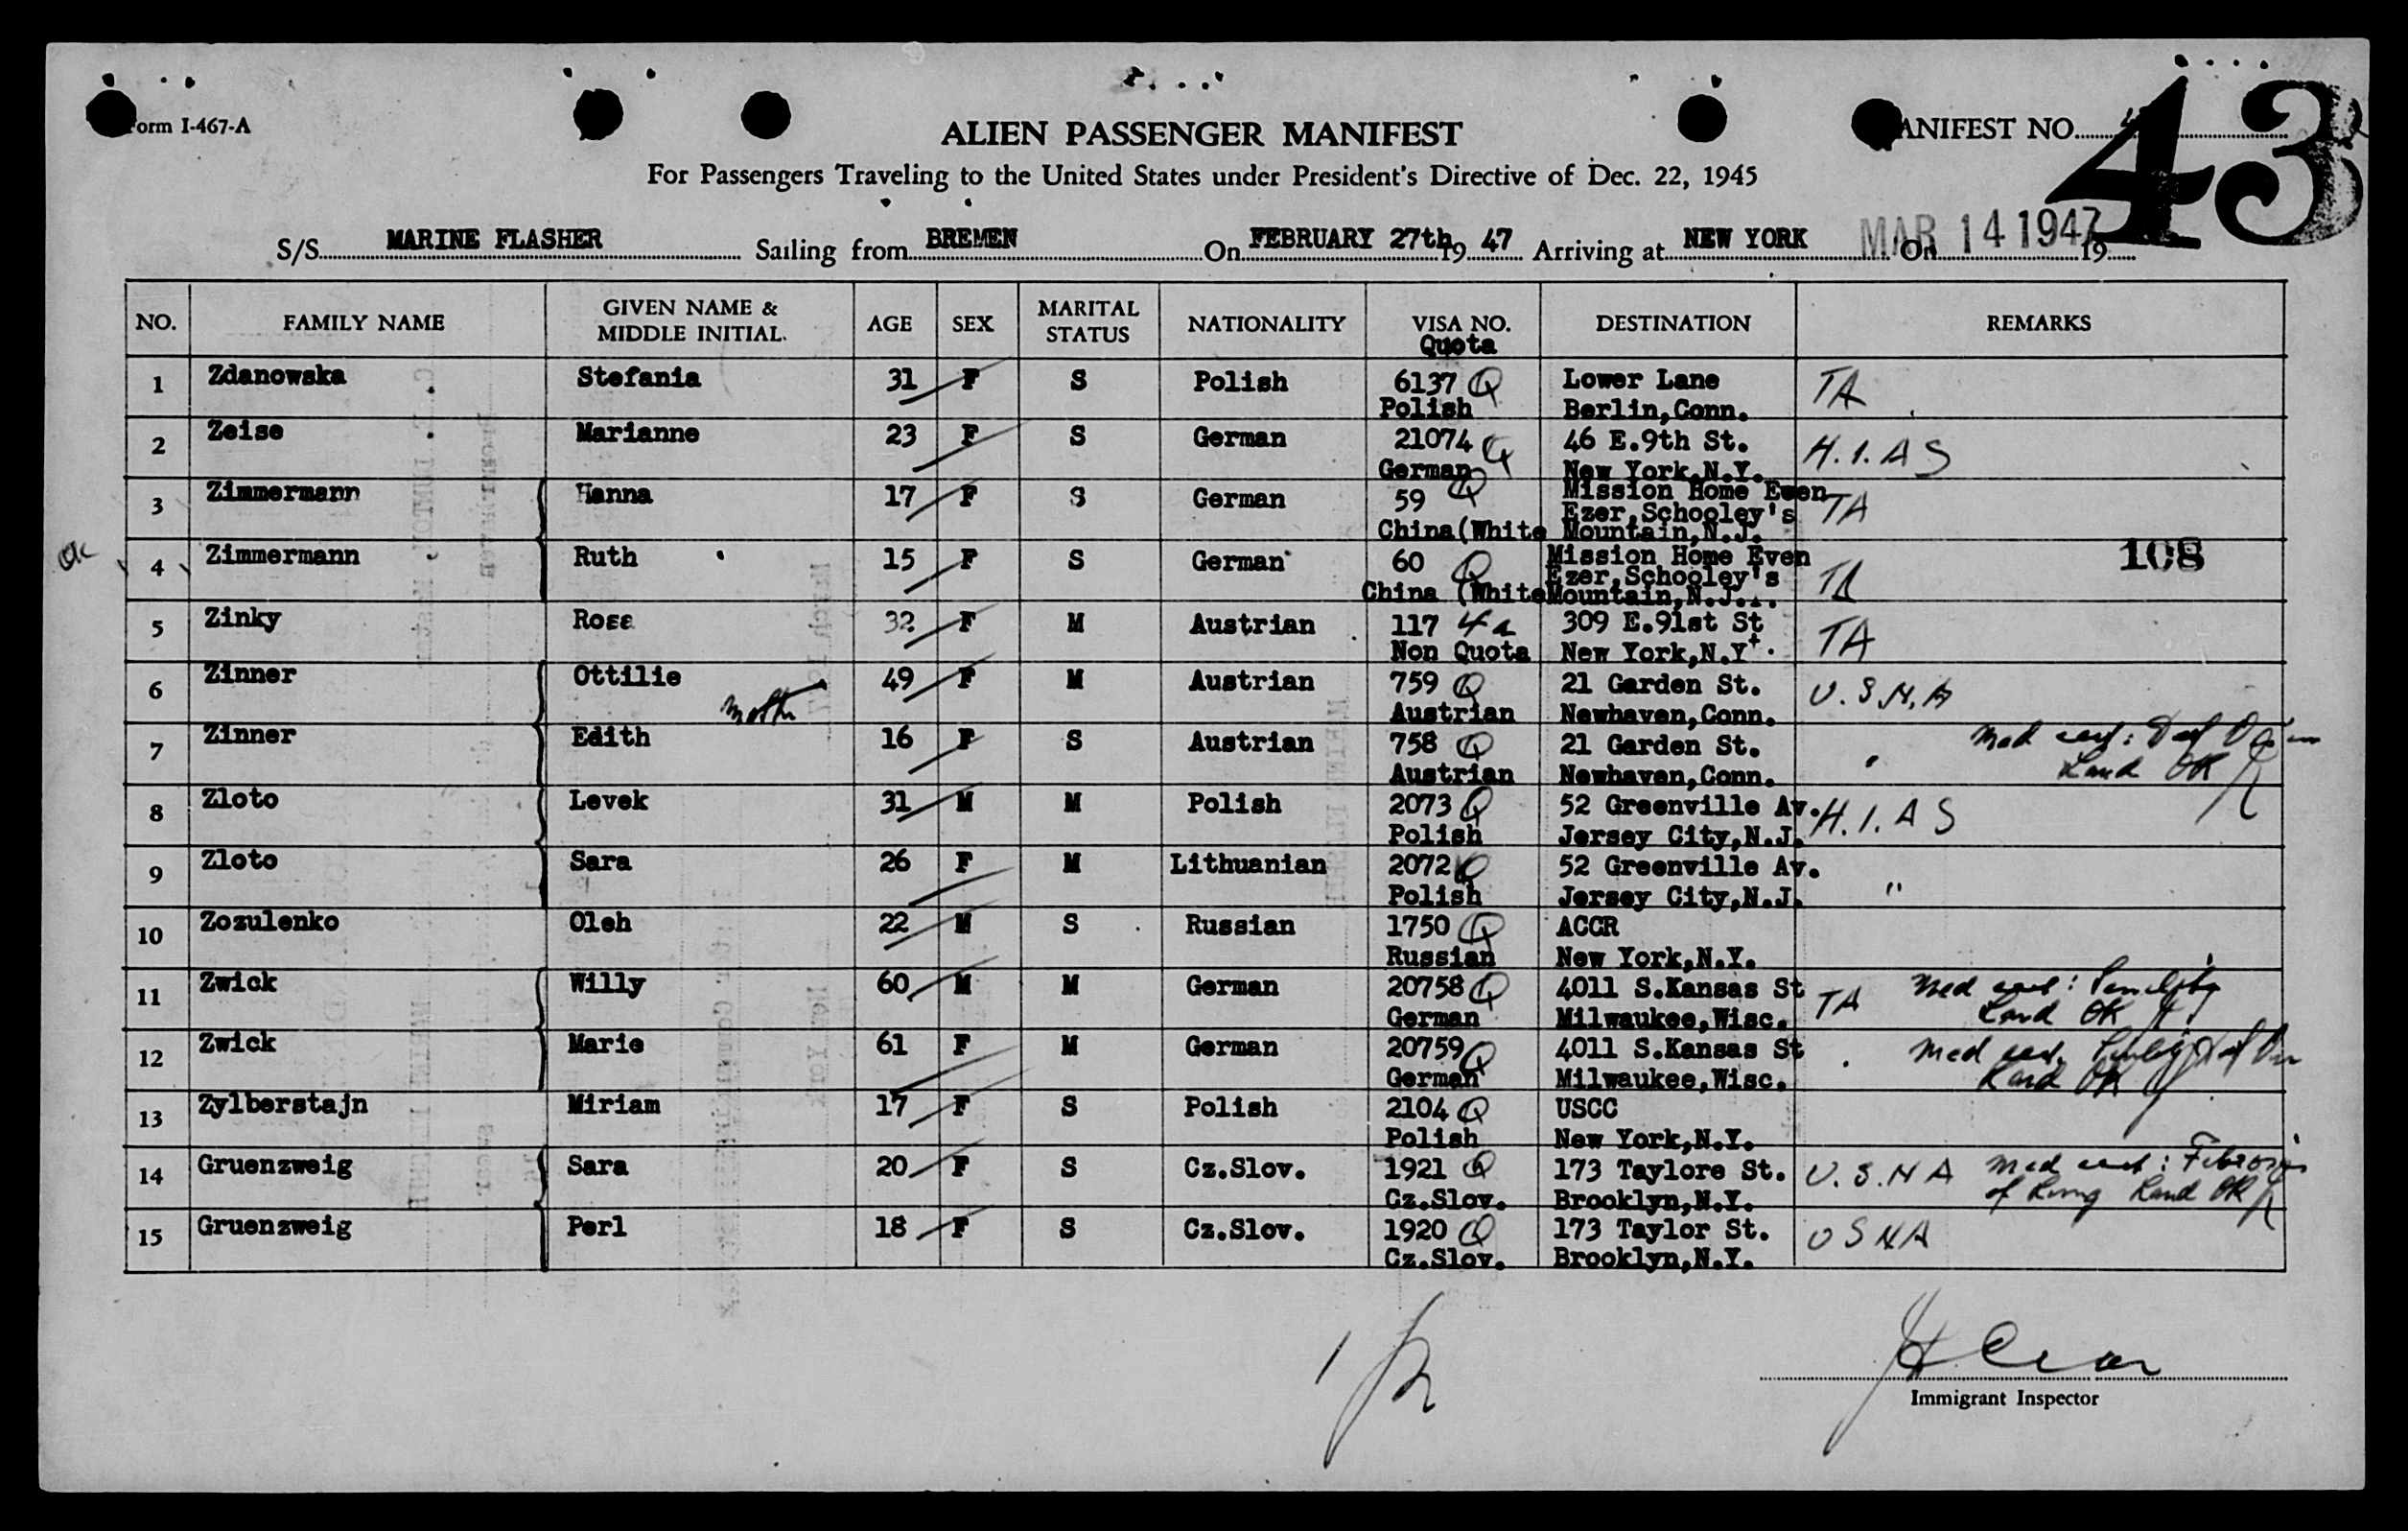 Form I-467-A
ALIEN PASSENGER MANIFEST
MANIFEST NO.
43
For Passengers Traveling to the United States under President's Directive of Dec. 22, 1945
S/S MARINE FLASHER Sailing from BREMEN On FEBRUARY 27th 19 47 Arriving at NEW YORK On MAR 14 1947 19
NO. FAMILY NAME GIVEN NAME & MIDDLE INITIAL. AGE SEX MARITAL STATUS NATIONALITY VISA NO. Quota DESTINATION REMARKS
1 Zdanowska Stefania 31 F S Polish 6137 Q Lower Lane TA
Polish Berlin,Conn.
2 Zeise Marianne 23 F S German 21074 Q 46 E.9th St. H.I.A S
German New York,N.Y.
3 Zimmermann Hanna 17 F S German 59 Q Mission Home Even TA
Ezer,Schooley's
China(White Mountain,N.J.
ok 4 Zimmermann Ruth 15 F S German 60 Q Mission Home Even TA 108
Ezer,Schooley's
China (White Mountain,N.J.
5 Zinky Rose 32 F M Austrian 117 4a 309 E.91st St TA
Non Quota New York,N.Y.
6 Zinner Ottilie 49 F M Austrian 759 Q 21 Garden St. U.S.N.A
mother Austrian Newhaven,Conn.
7 Zinner Edith 16 F S Austrian 758 Q 21 Garden St. " Med cert: Def
Austrian Newhaven,Conn. Land OK
8 Zloto Levek 31 M M Polish 2073 Q 52 Greenville Av. H.I.A S
Polish Jersey City,N.J.
9 Zloto Sara 26 F M Lithuanian 2072 Q 52 Greenville Av. "
Polish Jersey City,N.J.
10 Zozulenko Oleh 22 M S Russian 1750 Q ACCR
Russian New York,N.Y.
11 Zwick Willy 60 M M German 20758 Q 4011 S.Kansas St TA Med cert: Senility
German Milwaukee,Wisc. Land OK
12 Zwick Marie 61 F M German 20759 Q 4011 S.Kansas St Med cert.
German Milwaukee,Wisc. Land OK
13 Zylberstajn Miriam 17 F S Polish 2104 Q USCC
Polish New York,N.Y.
14 Gruenzweig Sara 20 F S Cz.Slov. 1921 Q 173 Taylore St. U.S.N A Med cert: Fibrosis
Cz.Slov. Brooklyn,N.Y. of Lung Land OK
15 Gruenzweig Perl 18 F S Cz.Slov. 1920 Q 173 Taylor St. U S N A
Cz.Slov. Brooklyn,N.Y.
Immigrant Inspector